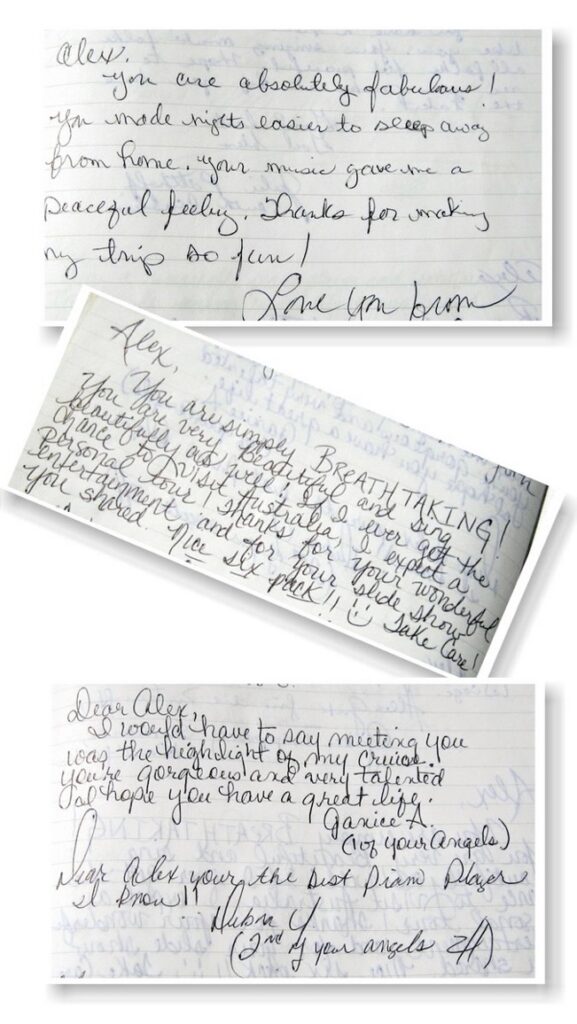 Alex,
You are absolutely fabulous!
You made nights easier to sleep away
from home. Your music gave me a
peaceful feeling. Thanks for making
my trip so fun!
Love you
Alex,
You are simply BREATHTAKING!
You are very beautiful and sing
beautifully as well! If I ever get the
chance to visit Australia I expect a
personal tour! Thanks for your wonderful
entertainment and for your slide show
you shared. Nice six pack!! Take Care!
Dear Alex,
I would have to say meeting you
was the highlight of my cruise.
you're gorgeous and very talented
I hope you have a great life.
Janice A.
(1 of your Angels)
Dear Alex your the best Piano Player
I know!!
(2nd of your angels